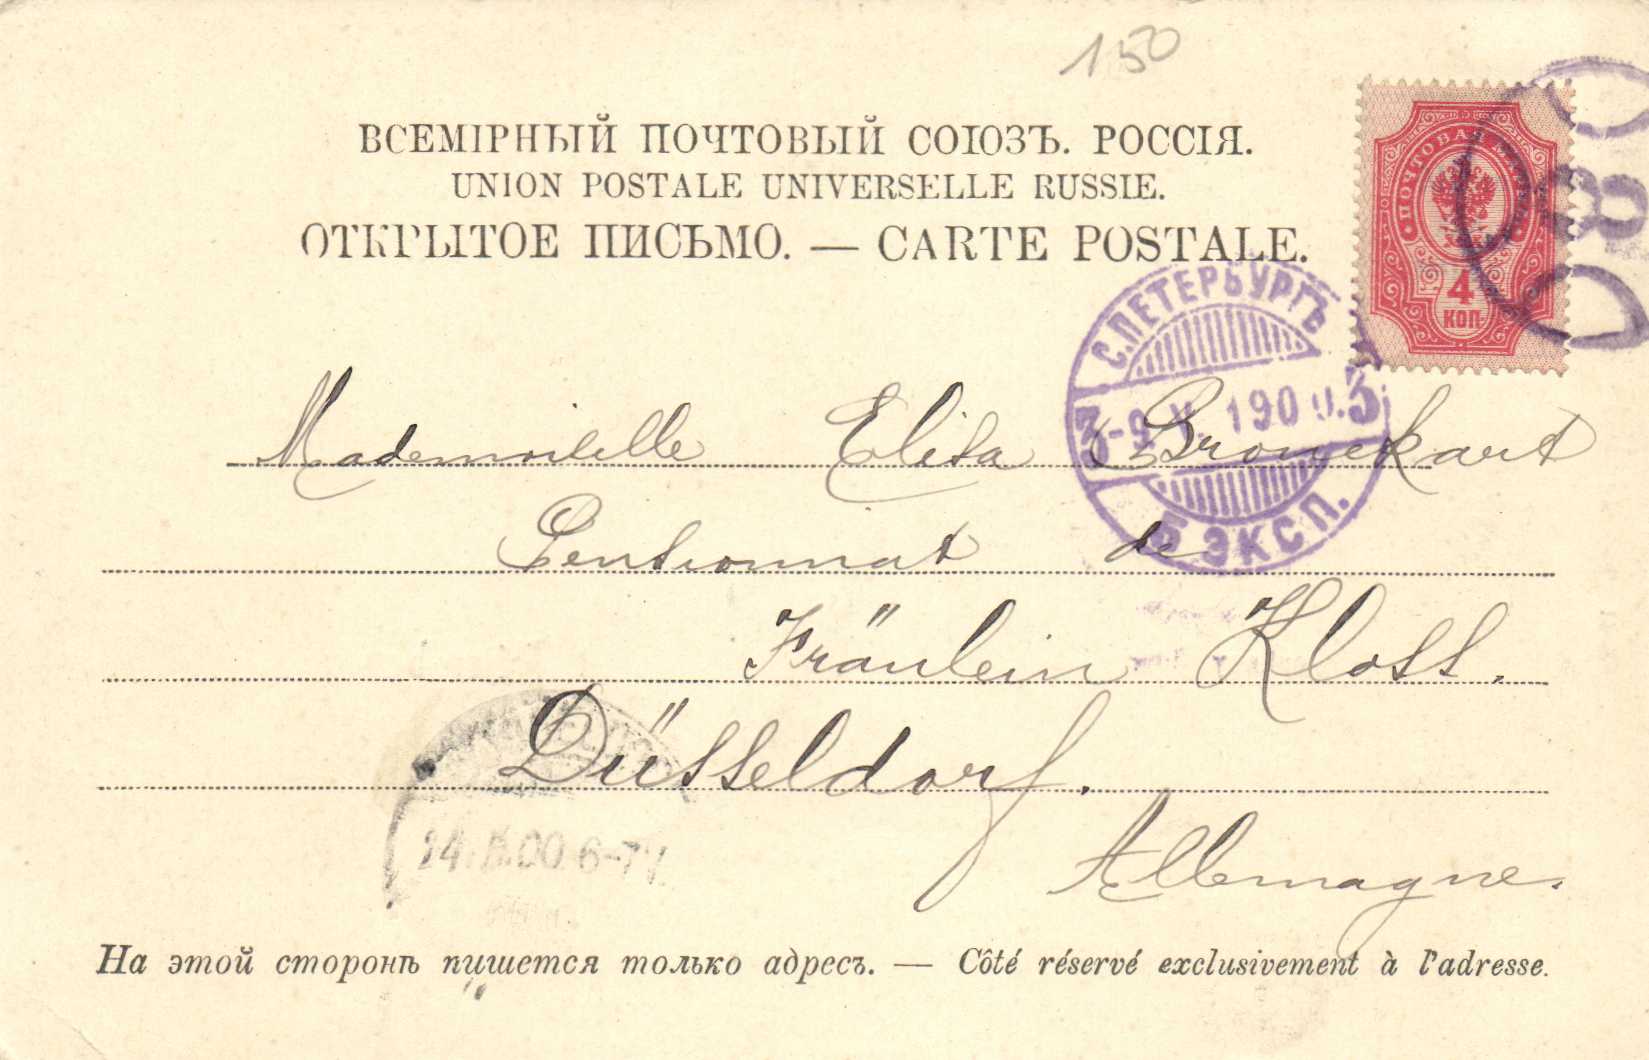 150
ВСЕМІРНЫЙ ПОЧТОВЫЙ СОЮЗЪ. РОССІЯ.
UNION POSTALE UNIVERSELLE RUSSIE.
ОТКРЫТОЕ ПИСЬМО. — CARTE POSTALE.
ПОЧТОВАЯ
4
КОП.
С.ПЕТЕРБУРГЪ
3 -9.V.1900. 3
5 ЭКСП.
Mademoiselle Elisa Bronckart
Pensionnat de
Fräulein Kloss.
Düsseldorf.
Allemagne.
00 6-7
На этой сторонѣ пишется только адресъ. — Côté réservé exclusivement à l'adresse.